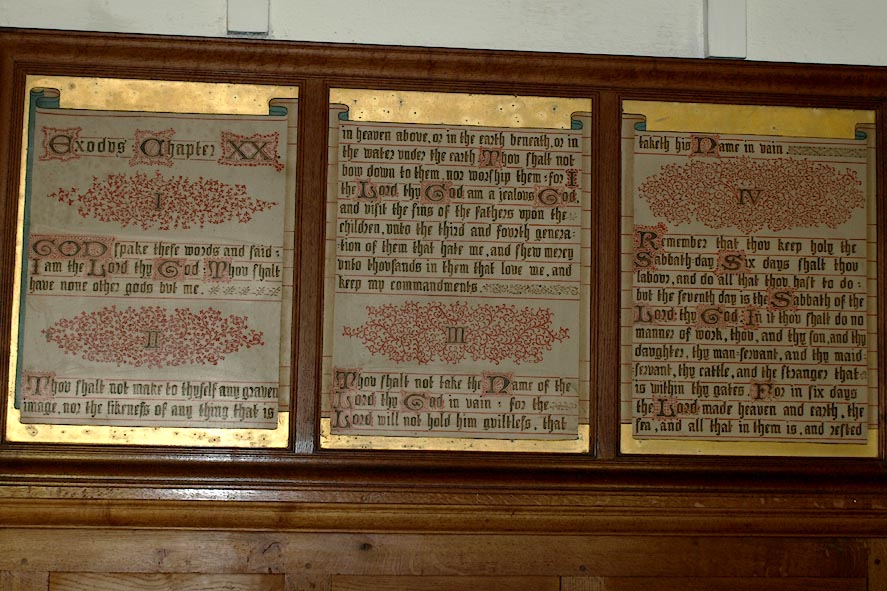 Exodvs Chapter XX
I
GOD spake these words and said:
I am the Lord thy God Thov shalt
have none other gods bvt me.
II
Thov shalt not make to thyself any graven
image, nor the likeness of any thing that is
in heaven above, or in the earth beneath, or in
the water vnder the earth Thov shalt not
bow down to them, nor worship them: for I
the Lord thy God am a jealovs God,
and visit the sins of the fathers vpon the
children, vnto the third and fovrth genera-
tion of them that hate me, and shew mercy
vnto thovsands in them that love me, and
keep my commandments.
III
Thov shalt not take the Name of the
Lord thy God in vain: for the
Lord will not hold him gviltless, that
taketh his Name in vain.
IV
Remember that thov keep holy the
Sabbath day. Six days shalt thov
labovr, and do all that thov hast to do:
bvt the seventh day is the Sabbath of the
Lord thy God. In it thov shalt do no
manner of work, thov, and thy son, and thy
davghter, thy man-servant, and thy maid
servant, thy cattle, and the stranger that
is within thy gates. For in six days
the Lord made heaven and earth, the
sea, and all that in them is, and rested